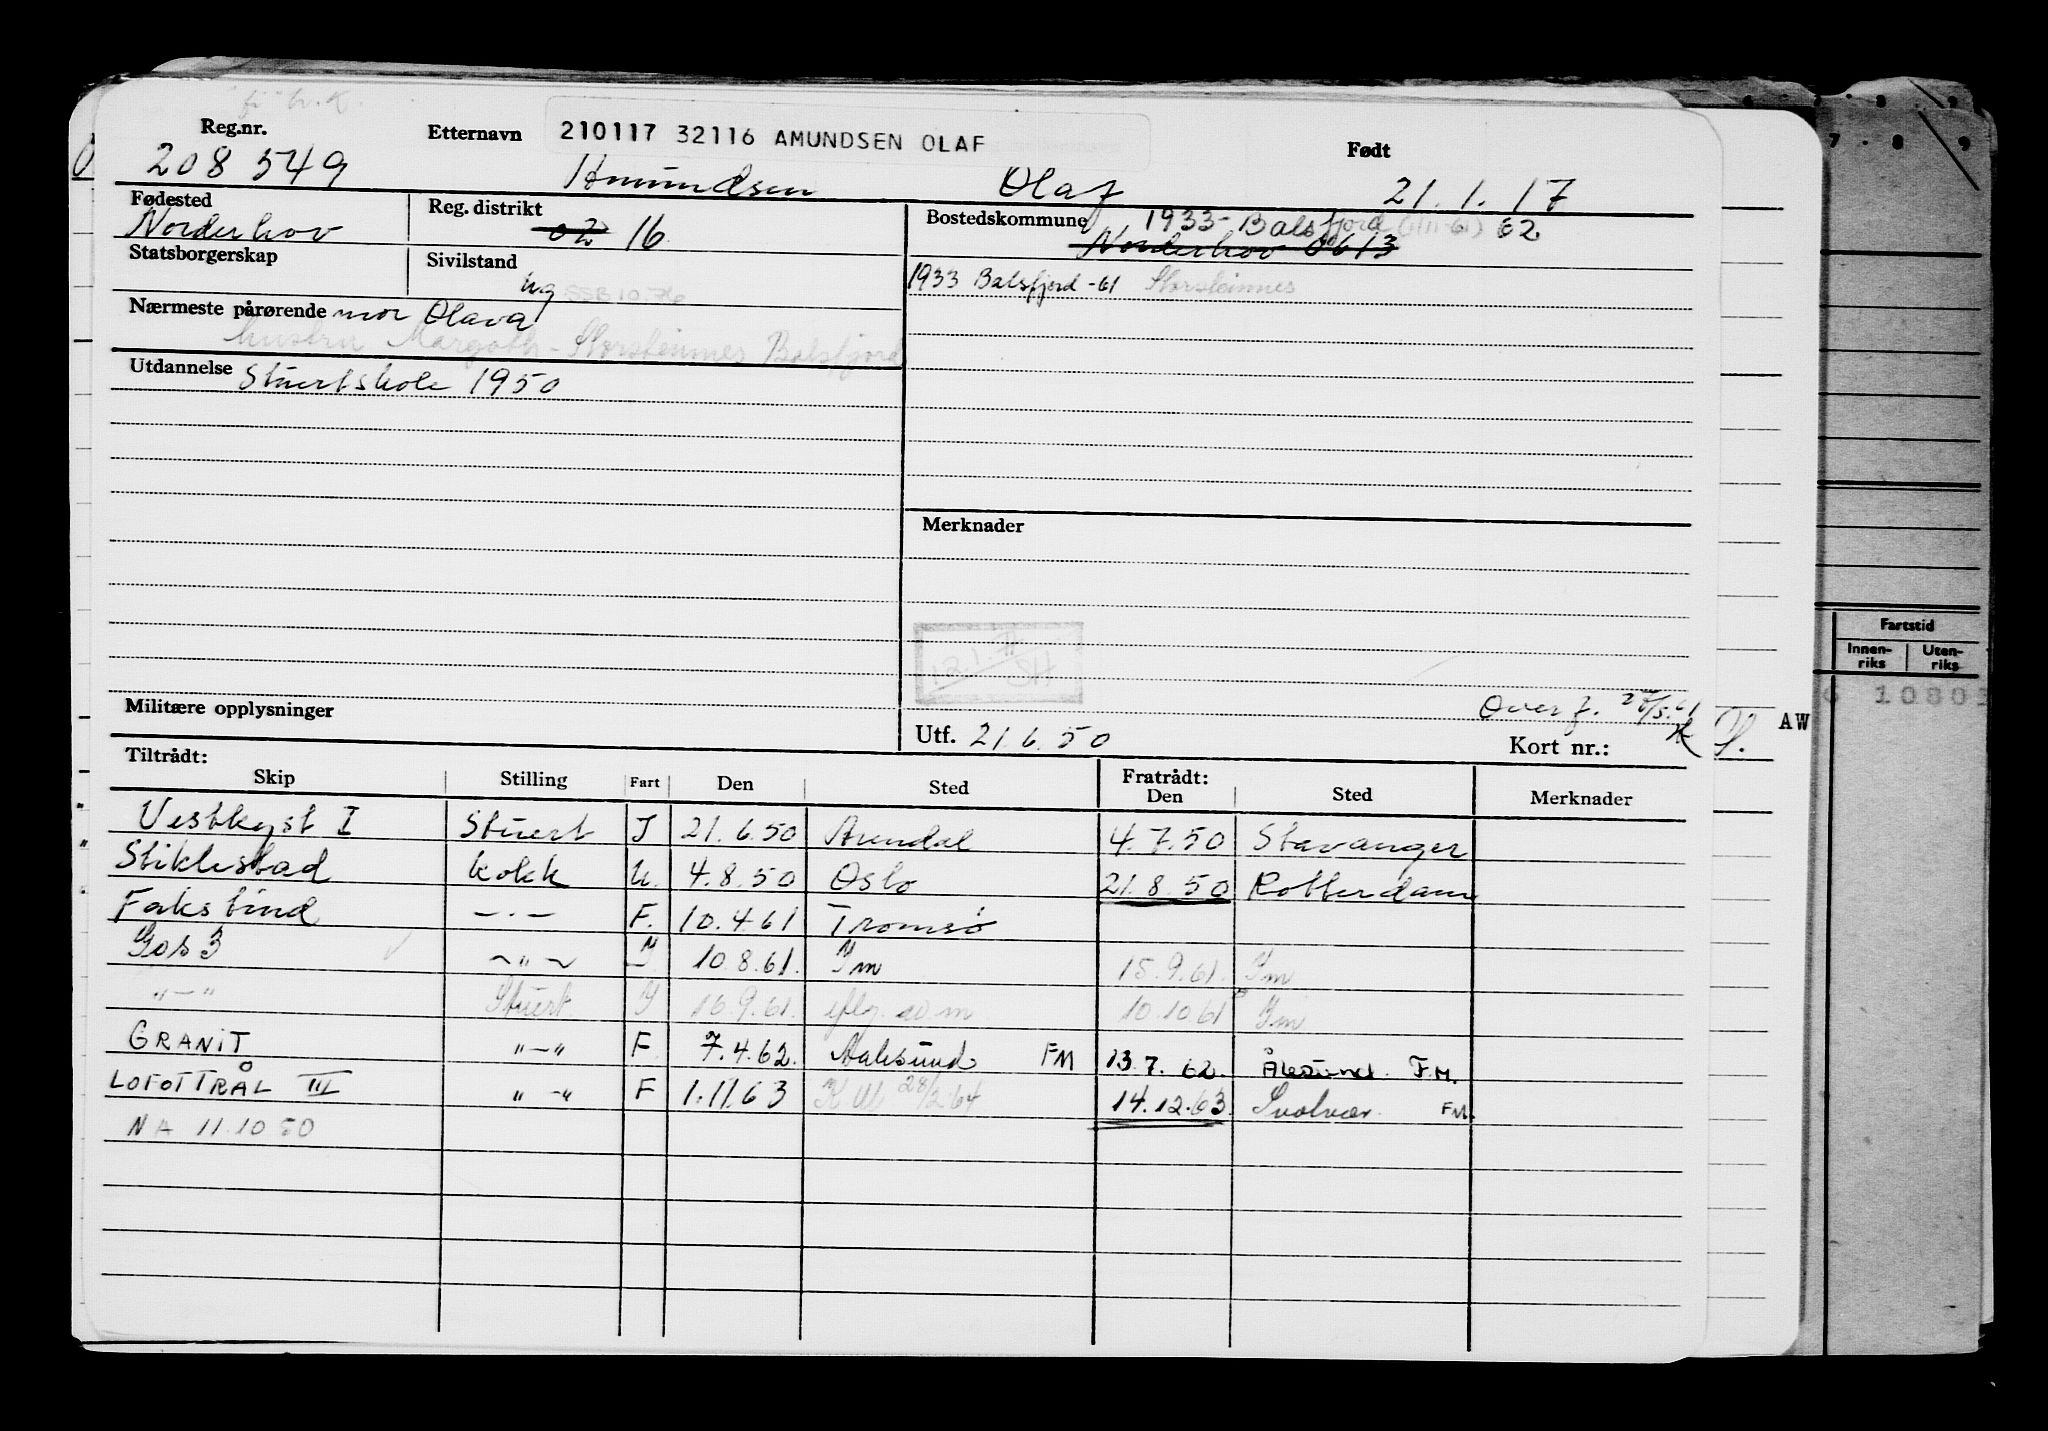 Reg.nr. Etternavn 210117 32116 AMUNDSEN OLAF Født
208 549 Amundsen Olaf 21.1.17
Fødested Reg. distrikt Bostedskommune 1933- Balsfjord 62
Norderhov 02 16 Norderhov 0613
Statsborgerskap Sivilstand ug 1933 Balsfjord -61 Storsteinnes
Nærmeste pårørende mor Olava
hustru Margoth - Storsteinnes Balsfjord
Utdannelse Stuertskole 1950
Merknader
12.1.71 SH
Militære opplysninger
Overf.
Utf. 21.6.50 Kort nr.: AW
Tiltrådt: Fratrådt:
Skip Stilling Fart Den Sted Den Sted Merknader
Vestkyst I Stuert I 21.6.50 Arendal 4.7.50 Stavanger
Stiklestad kokk U. 4.8.50 Oslo 21.8.50 Rotterdam
Fakstind -.- F. 10.4.61 Tromsø
Gos 3 ~"~ I 10.8.61. Im 15.9.61. Im
"-" Stuert I 16.9.61. 10.10.61 Im
GRANIT "-" F. 7.4.62. Aalesund FM 13.7.62. Ålesund. F.M.
LOFOTTRÅL III "-" F 1.11.63 28/2.64 14.12.63. Svolvær. FM.
NA 11.10.50
Fartstid
Innen-riks Uten-riks